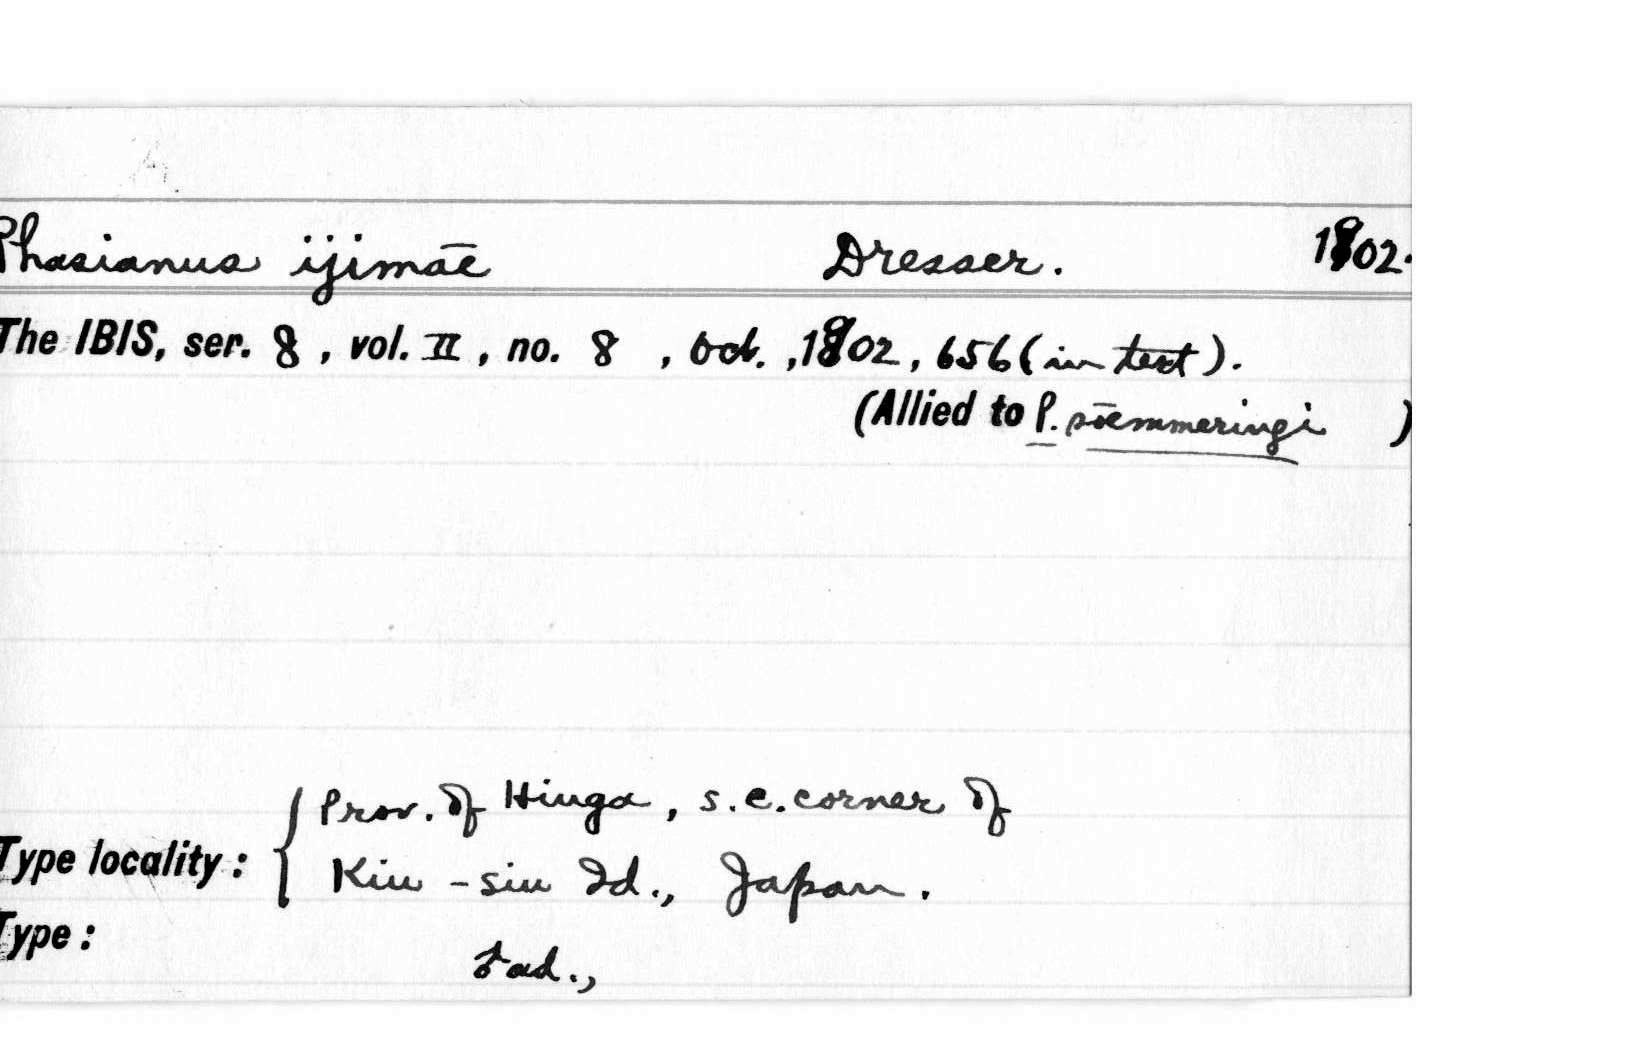 Phasianus ijimae Dresser. 1902.
The IBIS, ser. 8, vol. II, no. 8, Oct., 1902, 656 (in text).
(Allied to P. soemmeringi )
Prov. of Hiuga, s.e. corner of
Type locality: Kiu-siu Id., Japan.
Type:
♂ ad.,